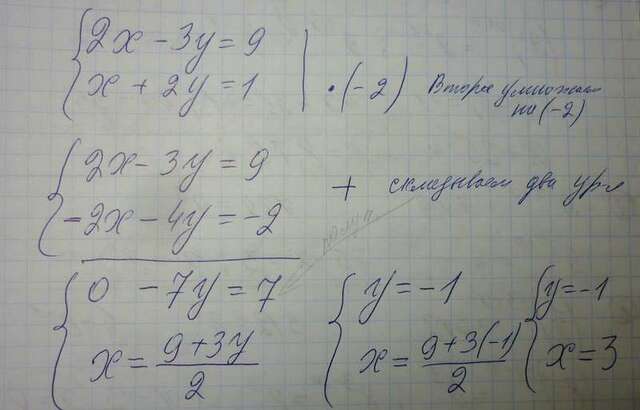 2x - 3y = 9
x + 2y = 1 | · (-2) Второе умножаем
на (-2)
2x - 3y = 9
-2x - 4y = -2 + складываем два ур-я
0 - 7y = 7 y = -1 y = -1
x = (9 + 3y)/2 x = (9 + 3(-1))/2 x = 3